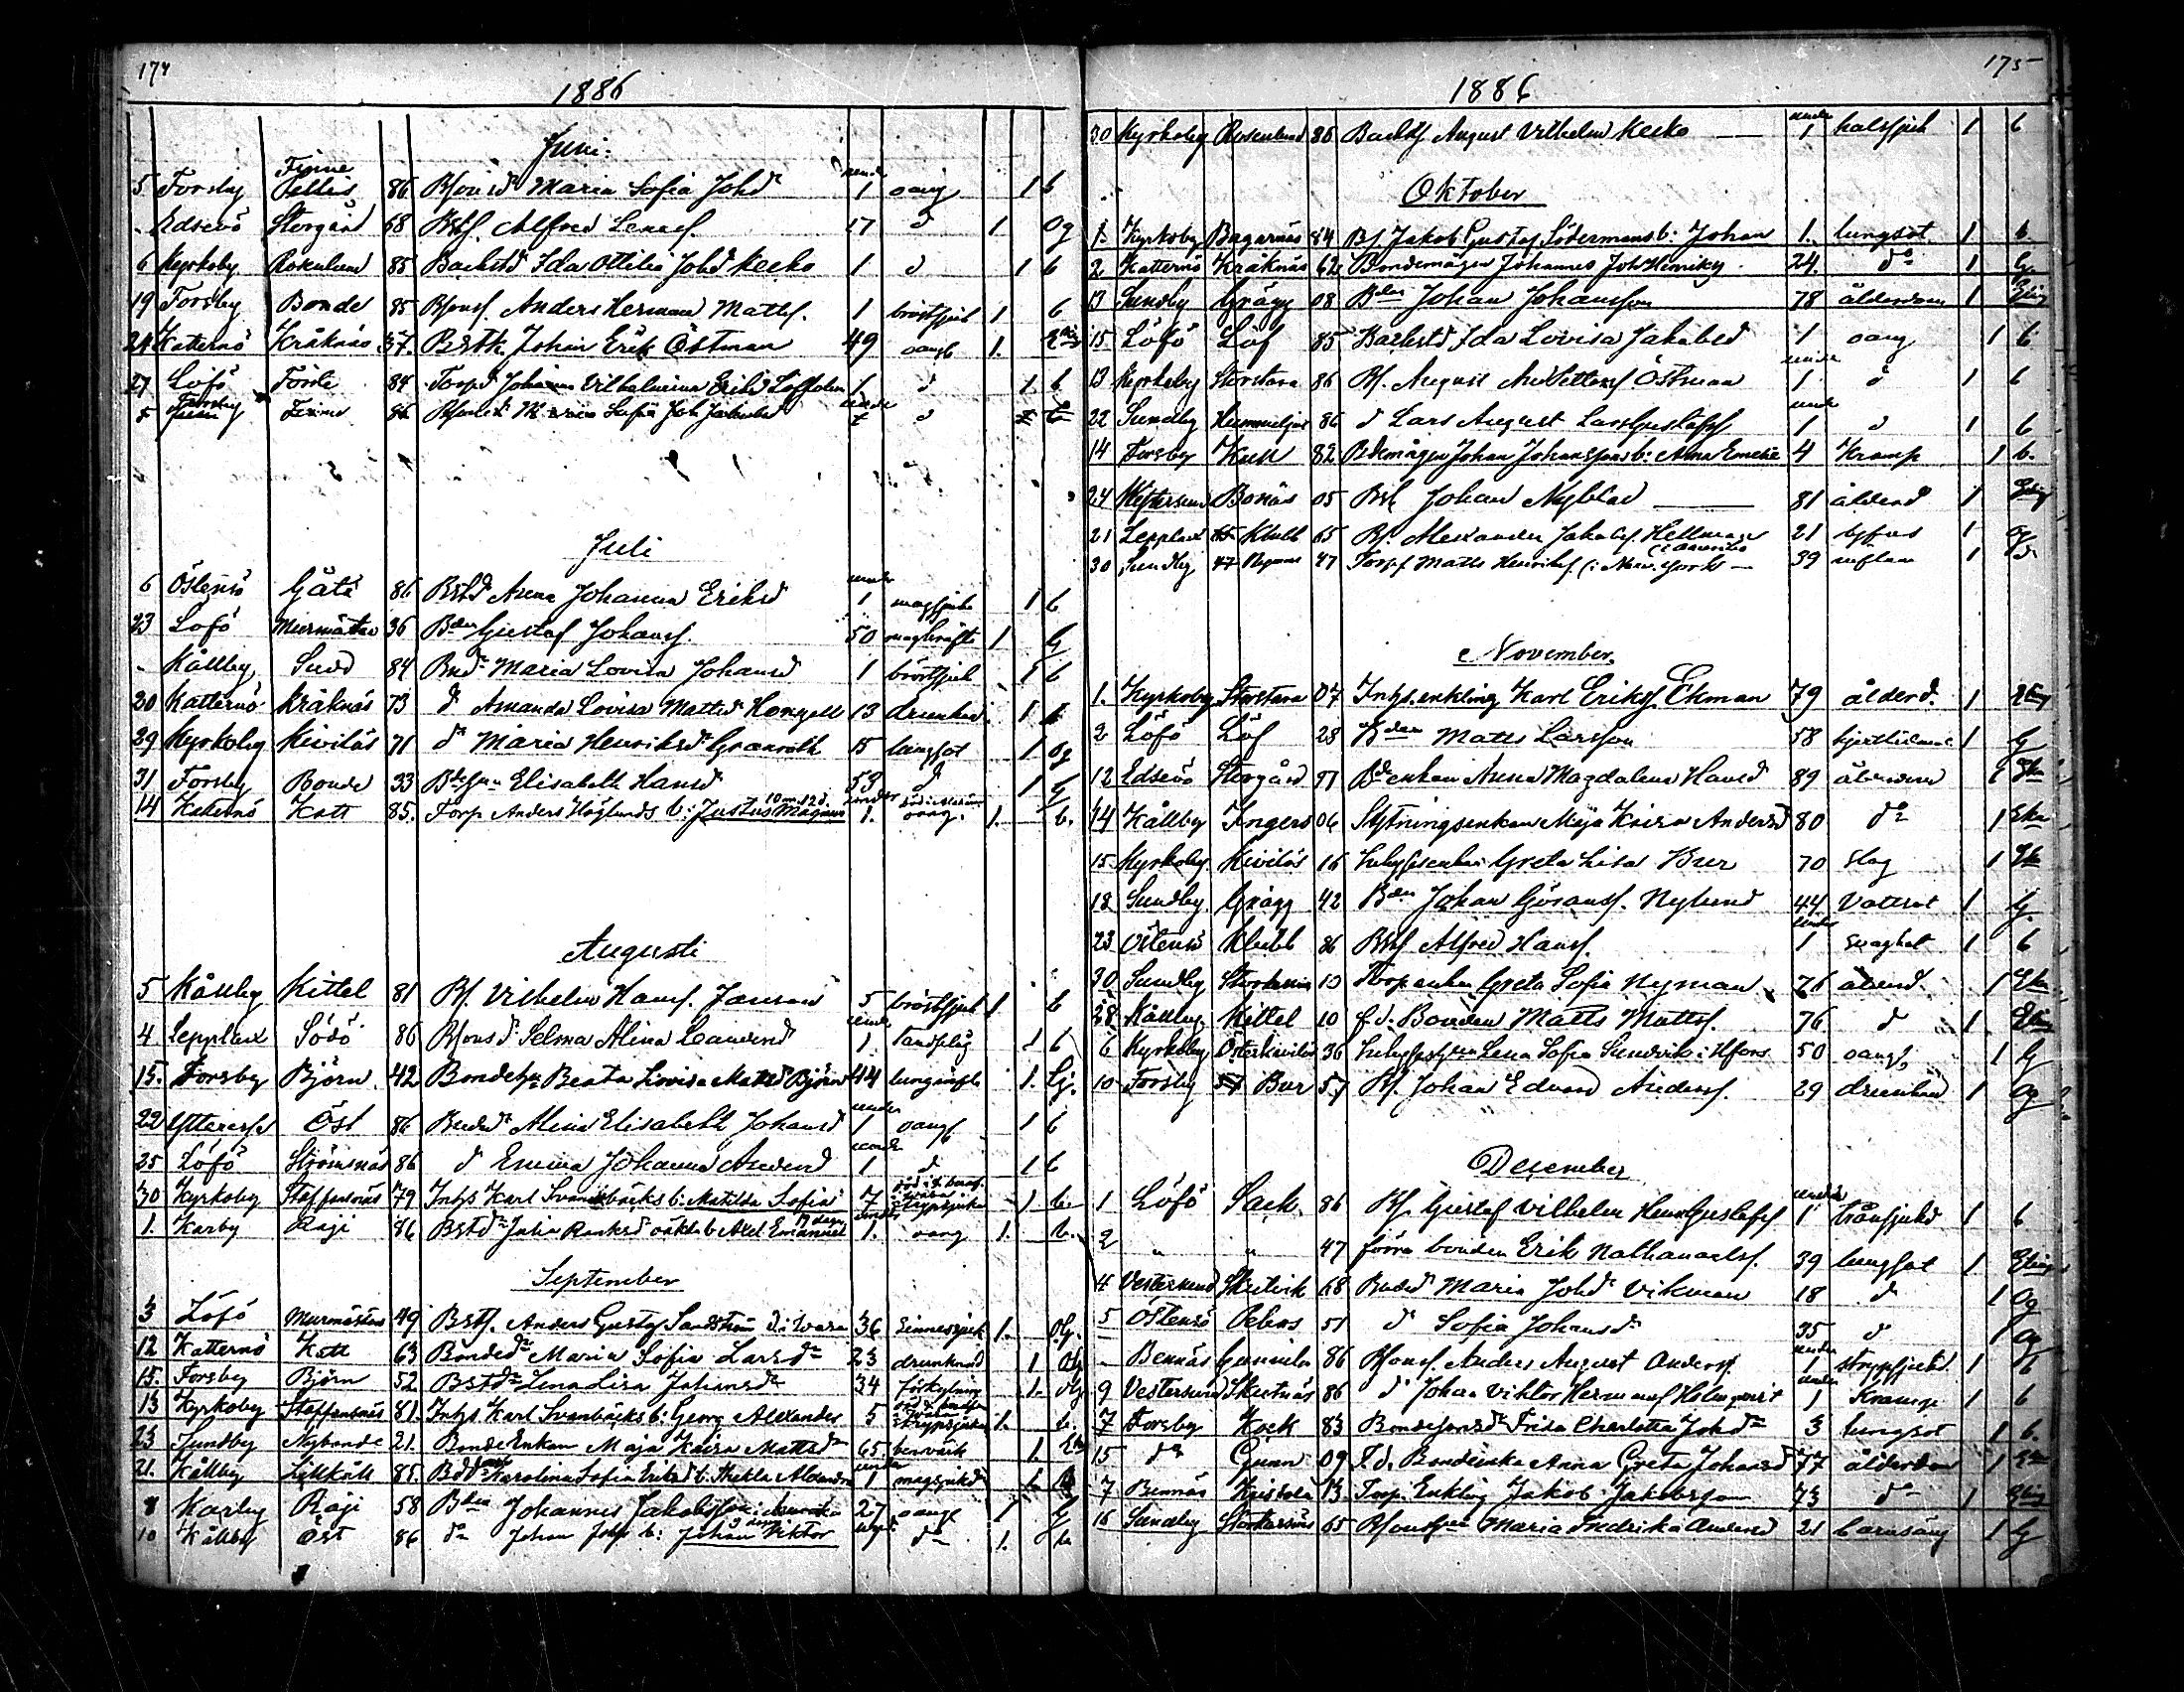 174
1886
Juni.
Finne
5. Forsby Pellas 86 Bsonsdr Maria Sofia Johdr under 1 oang 1 b
Edsevö Storgård 68 Bstfs. Alfred Lenasf. 17 d 1 Og
6 Kyrkoby Rosenlund 85 Backstd Ida Ottilia Johd Kecko 1 d 1 b
19 Forsby Bonde 85 Bsonsf. Anders Herman Mattsf. 1 bröstsjuk 1 b
24 Katternö Kråknäs 37. Bstk Johan Erik Östman 49 oang 1.
27 Löfö Förde 84 Torpd Johanna Vilhelmina Eriksd Löfholm 1 d 1 b
5 Forsby Finne 86 Bsonsd Maria Sofia Joh Jakobsd under 1 d 1 b
Juli
6 Östensö Gåtå 86 Bstd Anna Johanna Eriksd under 1 magsjuka 1 b
23 Löfö Murmästar 36 Bden Gustaf Johansf. 50 magkräfta 1 G
Kållby Sund 84 Bndr Maria Lovisa Johansd 1 bröstsjuk 1 b
20 Katternö Kråknäs 73 d Amanda Lovisa Mattsdr Hongell 13 drunknad 1 b
29 Kyrkoby Kiviläs 71 dr Maria Henriksdr Granroth 15 lungsot 1 og
31 Forsby Bonde 33 Bdehun Elisabeth Hansd 53 d 1 G
14 Katternö Katt 85. Torp Anders Höglunds b: Justus Magnus 10 m. 12 d. under 1. oang. 1. b.
Augusti
5 Kållby Kittel 81 Bs. Vilhelm Hansf. Jansson 5 bröstsjuk 1 b
4 Lepplax Södö 86 Bsonsd Selma Alina Leanderd under 1 Tandfelig 1 b
15. Forsby Björn 42 Bondehu Beata Lovisa Matsd Björn 44 lunginfl 1. G.
22 Ytteresse Öst 86 Bndedr Alina Elisabeth Johansd under 1 oang 1 b
25 Löfö Stjömsnäs 86 d Emma Johanna Andersd under 1 d 1 b
30 Kyrkoby Staffansnäs 79 Inhys Karl Svanbäcks b: Matilda Sofia 7 strypsjuka 1 b.
1. Karby Räji 86 Bstdr Julia oäkta b Axel Emanuel 17 dagar under 1. oang 1. b.
September
3 Löfö Murmästar 49 Bstfs. Anders Gustaf Sandström d. i Wasa 36 sinnessjuk 1. Og.
12 Katternö Katt 63 Bondedr Maria Sofia Larsdr 23 drunknad 1 Og
15. Forsby Björn 52 Bstdr Lena Lisa Johansdr 34 förkylning 1. Og
13 Kyrkoby Staffansnäs 81. Inhys Karl Svanbäcks b: Georg Alexander 5 strypsjuka 1. b.
23 Sundby Nybonde 21. Bonde Enkan Maja Kaisa Mattsdr 65. benvärk 1. Eka
21. Kållby Lillkåll 85. Karolina Sofia Eriksd b: Thekla Alexandra under 1 magsjukd 1 b
8 Karby Räji 58 Bden Johannes Jakobsson i Amerika 27 oang 1 G
10 Kållby Öst 86 dr Johan Johs b: Johan Viktor dr 1. b
175
1886
30 Kyrkoby Rosenlund 86 Backstfs August Vilhelm Kecko under 1 halssjuk 1 b
Oktober
1. Kyrkoby Bagarnäs 84 Bs. Jakob Gustaf Södermans b: Johan 1. lungsot 1 b.
2 Katternö Kråknäs 62 Bondemågen Johannes Joh Henriks 24. do 1 G.
13 Sundby Grägg 08 Bden Johan Johansson 78 ålderdom 1 Eling
15 Löfö Löf 85 Backstd Ida Lovisa Jakobsd 1 oang 1 b
13 Kyrkoby Storstara 86 Bs. August Östman under 1 d 1 b
22 Sundby 86 d Lars August Lars Gustafsf under 1 d 1 b
14 Forsby Kull 82 Bdemågen Johan Johanssons b: Alma Emelie 4 Kramp 1 b.
24 Westersund Bonäs 05 Bst Johan Nyblad 81 ålderd 1 Eling
21 Lepplax Klubb 65 Bs. Alexander Jakobsf. Hellman 21 tyfus 1 og
30 Sundby Nyman 47 Torpf Matts Henriksf (i New-York i Amerika 39 1
November.
1. Kyrkoby Storstara 07 Inhys.enkling Karl Eriksf. Ekman 79 ålderd. 1 Eling
2 Löfö Löf 28 Bden Matts Larsson 58 1 G
12 Edsevö Storgård 97 Bdeenkan Anna Magdalena Hansd 89 ålderdom 1 Eka
14 Kållby Ingers 06 Sytningsenkan Maja Kaisa Andersd 80 do 1 Eka
15 Kyrkoby Kiviläs 16 Inhysesenkan Greta Lisa Bur 70 slag 1 Eka
18 Sundby Grägg 42 Bden Johan Göransf. Nylund 44 Vattsot 1 G.
23 Östensö Klubb 86 Bstfs Alfred Hansf. under 1 svaghet 1 b
30 Sundby 10 Torpenkan Greta Sofia Nyman 76 ålderd. 1 Eka
28 Kållby Kittel 10 f.d. Bonden Matts Mattsf. 76 d 1 Eling
6 Kyrkoby Österkiviläs 36 Lena Sofia Sundvik i Hfors 50 oang 1 G
10 Forsby Bur 57 Bs. Johan Edvard Andersf. 29 drunknad 1 og
December
1 Löfö Sack 86 Bs. Gustaf Vilhelm Henr Gustafsf under 1 trånsjukd 1 b
2 " " 47 förra bonden Erik Nathanaelsf. 39 lungsot 1 Eling
4 Vestersund Skutvik 68 Bndedr Maria Johdr Vikman 18 dr 1 Og
5 Östensö Pebas 51 d Sofia Johansdr 35 d 1 Og
Bennäs Gunnila 86 Bsonsf. Anders August Andersf. under 1 strypsjukd. 1 b
9 Vestersund Skutnäs 86 d Johan Viktor Hermansf Holmqvist under 1 Kramp 1 b
7 Forsby Kock 83 Bondesonsdr Frida Charlotta Johdr 3 lungsot 1 b.
15 do Gunn 09 F.d. Bondeenka Anna Greta Johansd 77 ålderdom 1 Eka
7 Bennäs 13 Torp. Enkling Jakob Jakobsson 73 do 1 Eling
16 Sundby 65 Bsonshun Maria Fredrika Andersd 21 barnsäng 1 G